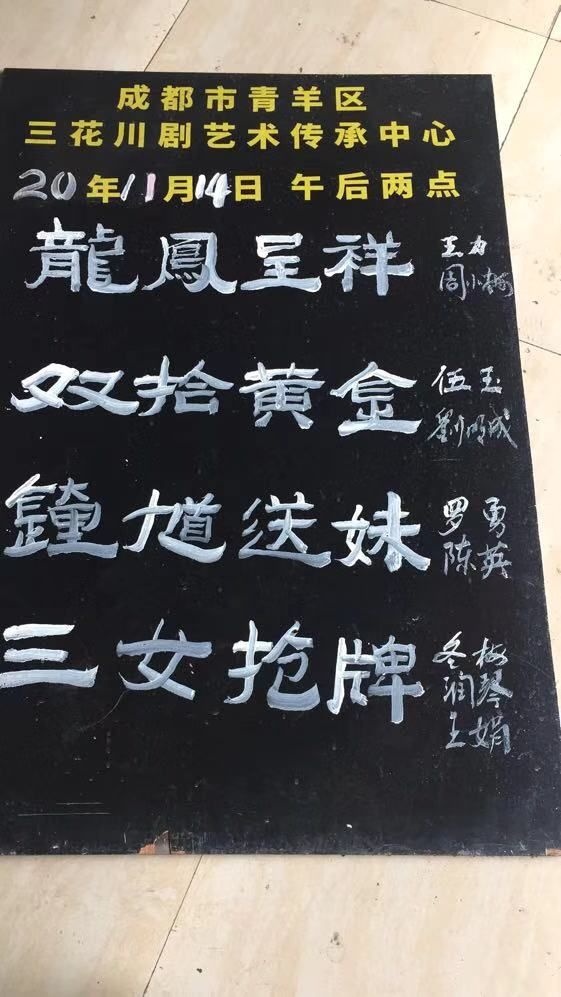 成都市青羊区
三花川剧艺术传承中心
20年11月14日 午后两点
龍鳳呈祥
王力
周小梅
双拾黄金
伍玉
劉明成
鐘馗送妹
罗勇
陈英
三女抢牌
冬梅
润琴
王娟